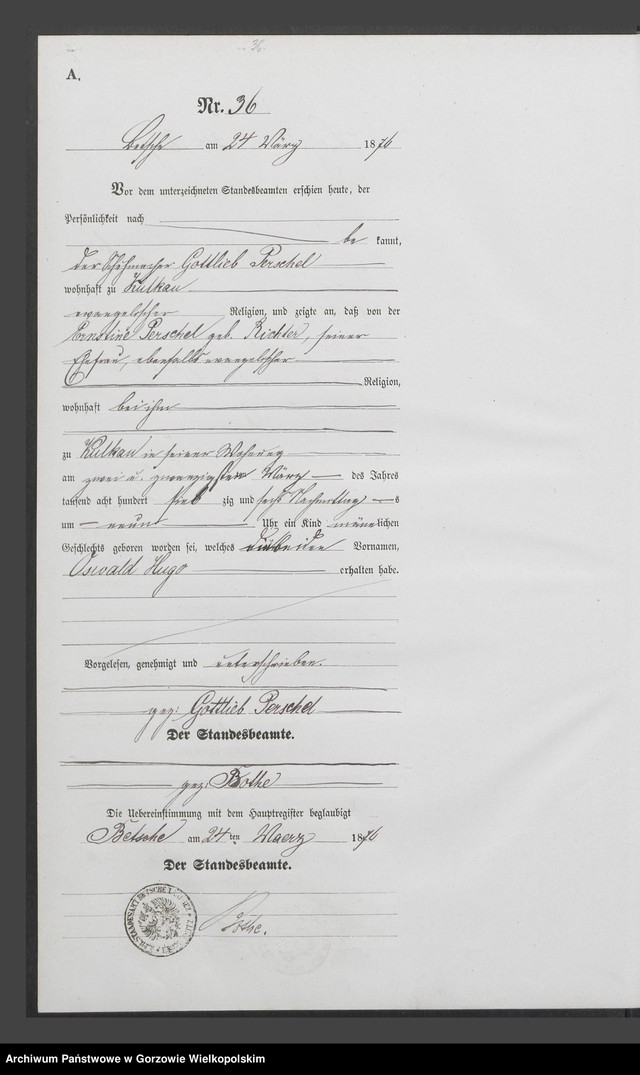 36
A.
Nr. 36
Betsche am 24 März 1876
Vor dem unterzeichneten Standesbeamten erschien heute, der
Persönlichkeit nach
be kannt,
der Schuhmacher Gottlieb Perschel
wohnhaft zu Kulkau
evangelischer Religion, und zeigte an, daß von der
Ernstine Perschel geb. Richter, seiner
Ehefrau, ebenfalls evangelischer
Religion,
wohnhaft bei ihm
zu Kulkau in seiner Wohnung
am zwei u. zwanzigsten März des Jahres
tausend acht hundert sieb zig und sechs Nachmittag s
um neun Uhr ein Kind männlichen
Geschlechts geboren worden sei, welches die beiden Vornamen,
Oswald Hugo erhalten habe.
Vorgelesen, genehmigt und unterschrieben.
gez: Gottlieb Perschel
Der Standesbeamte.
gez: Bothe
Die Uebereinstimmung mit dem Hauptregister beglaubigt
Betsche am 24 ten Maerz 1876
Der Standesbeamte.
Bothe.
Archiwum Państwowe w Gorzowie Wielkopolskim